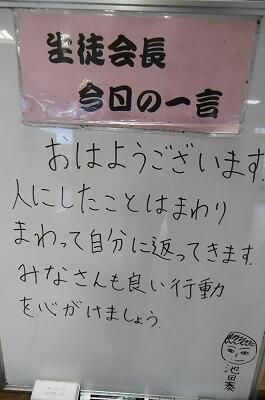 生徒会長
今日の一言
おはようございます。
人にしたことはまわり
まわって自分に返ってきます。
みなさんも良い行動
を心がけましょう。
池田奏